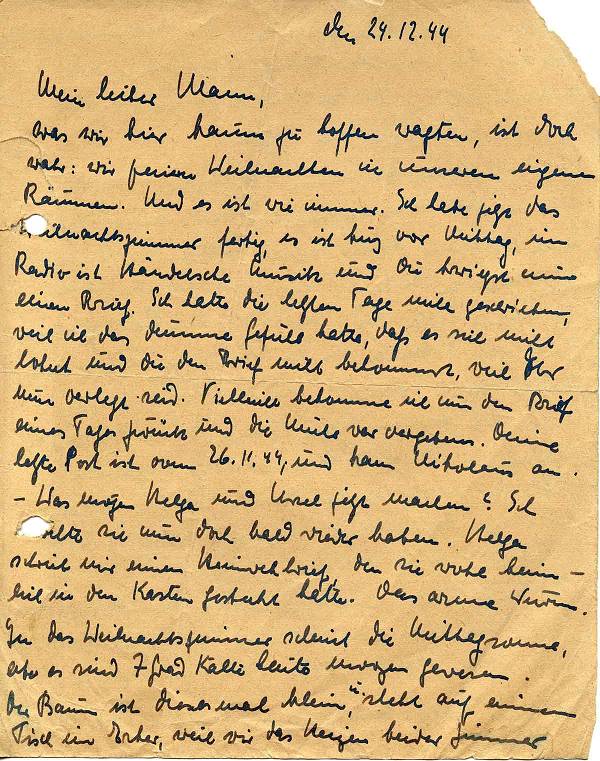 den 24.12.44
Mein lieber Mann,
was wir hier kaum zu hoffen wagten, ist doch
wahr: wir feiern Weihnachten in unseren eigenen
Räumen. Und es ist wie immer. Ich habe jetzt das
Weihnachtszimmer fertig, es ist kurz vor Mittag, im
Radio ist Händelsche Musik und Du kriegst nun
einen Brief. Ich hatte die letzten Tage nicht geschrieben,
weil ich das dumme Gefühl hatte, daß es sich nicht
lohnt und Du den Brief nicht bekommst, weil Ihr
nun verlegt seid. Vielleicht bekomme ich nun den Brief
eines Tages zurück und die Mühe war vergebens. Deine
letzte Post ist vom 26.11.44, und kam Nikolaus an.
- Was mögen Helga und Ursel jetzt machen? Ich
sie nun doch bald wieder haben. Helga
schrieb mir einen Heimwehbrief, den sie wohl heim-
lich in den Kasten gesteckt hatte. Das arme Wurm.
In das Weihnachtszimmer scheint die Mittagsonne,
aber es sind 7 Grad Kälte heute morgen gewesen.
Der Baum ist dieses mal klein, u. steht auf einem
Tisch im Erker, weil wir das Heizen beider Zimmer